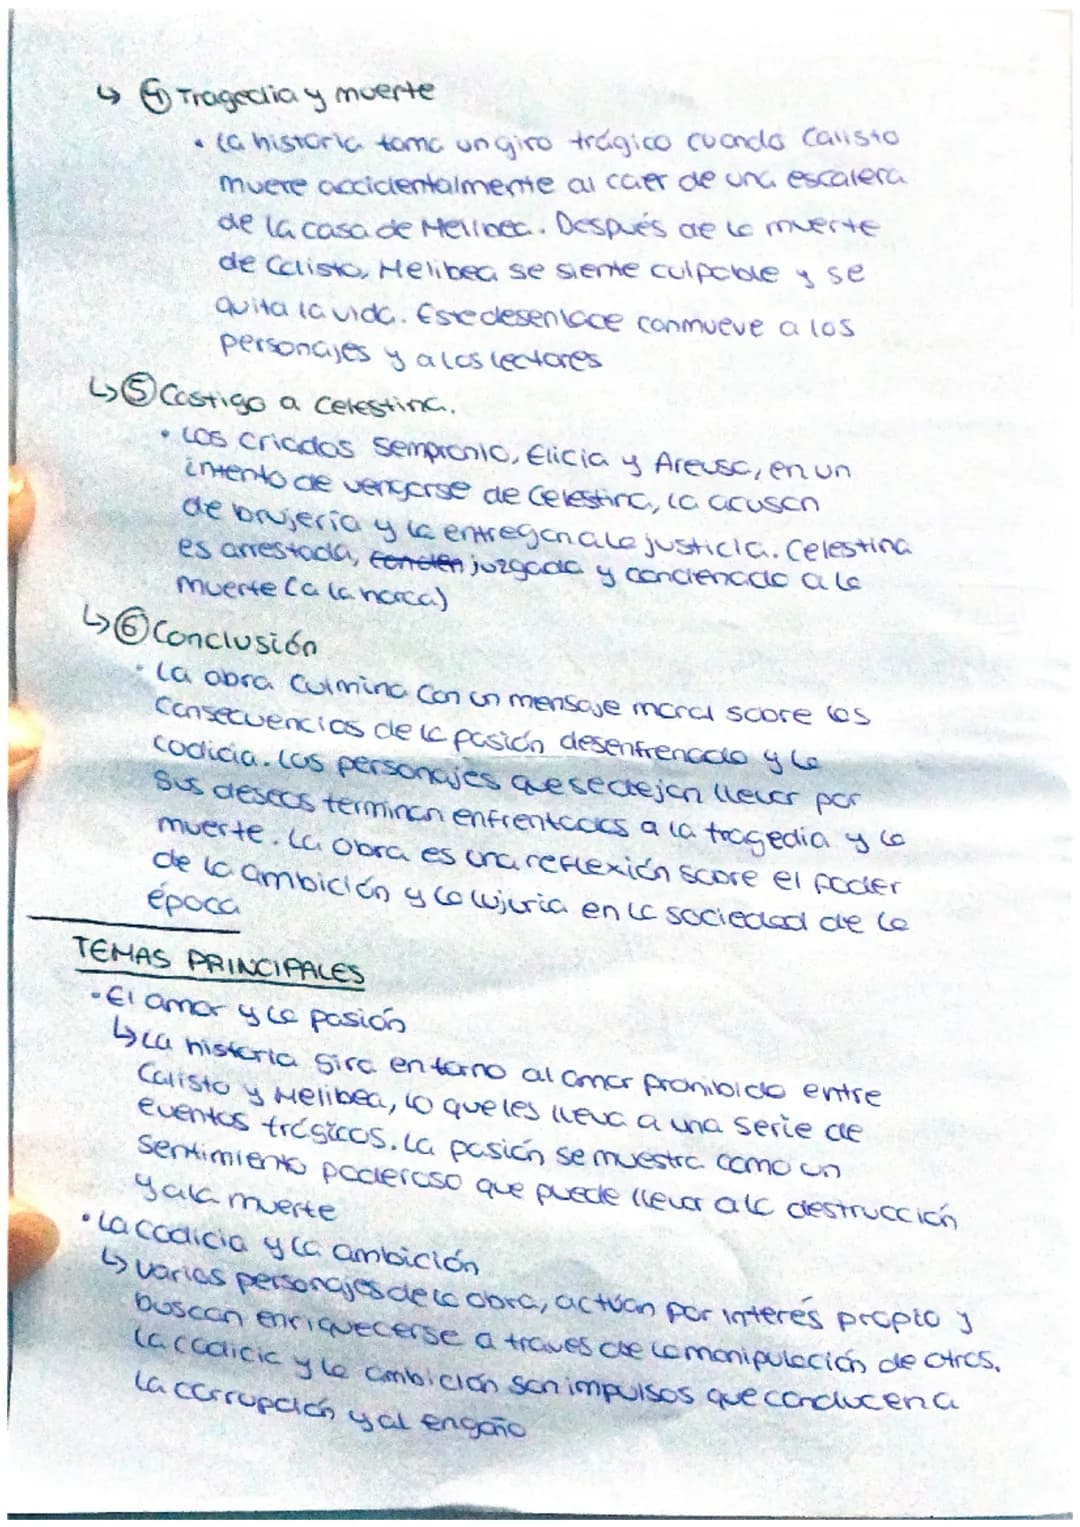 ↳ ④ Tragedia y muerte
• La historia toma un giro trágico cuando Calisto
muere accidentalmente al caer de una escalera
de la casa de Melibea. Después de la muerte
de Calisto, Melibea se siente culpable y se
quita la vida. Este desenlace conmueve a los
personajes y a los lectores
↳ ⑤ Castigo a Celestina.
• Los criados Sempronio, Elicia y Areusa, en un
intento de vengarse de Celestina, la acusan
de brujería y la entregan a la justicia. Celestina
es arrestada, conden juzgada y condenada a la
muerte (a la horca)
↳ ⑥ Conclusión
• La obra culmina con un mensaje moral sobre las
consecuencias de la pasión desenfrenada y la
codicia. Los personajes que se dejan llevar por
sus deseos terminan enfrentados a la tragedia y la
muerte. La obra es una reflexión sobre el poder
de la ambición y la lujuria en la sociedad de la
época
TEMAS PRINCIPALES
• El amor y la pasión
↳ La historia gira en torno al amor prohibido entre
Calisto y Melibea, lo que les lleva a una serie de
eventos trágicos. La pasión se muestra como un
sentimiento poderoso que puede llevar a la destrucción
y a la muerte
• La codicia y la ambición
↳ Varios personajes de la obra, actúan por interés propio y
buscan enriquecerse a traves de la manipulación de otros.
La codicia y la ambición son impulsos que conducen a
la corrupción y al engaño